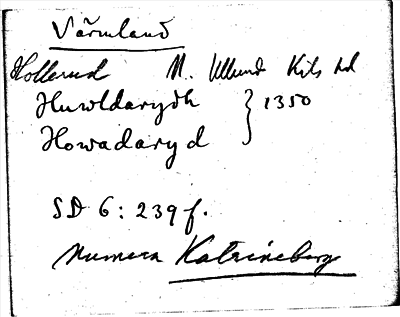 Värmland
Hollerud N. Ullerud Kils hd
Huwldarydh } 1350
Howadaryd
SD 6: 239 f.
numera Katrineberg